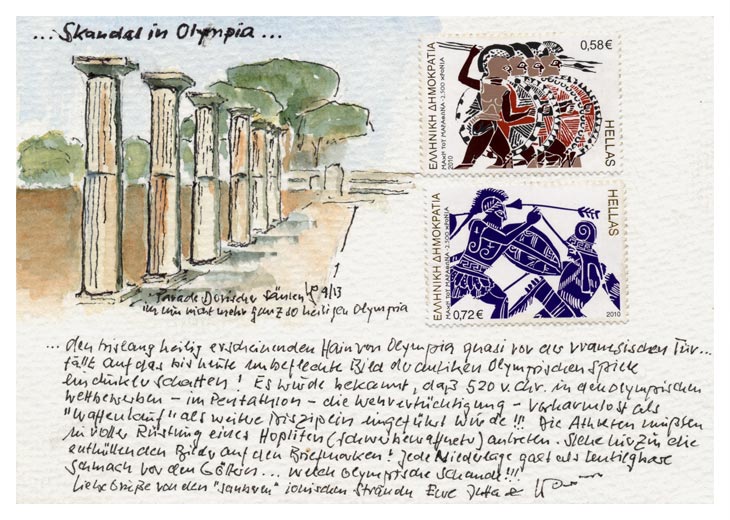 ... Skandal in Olympia ...
0,58€
ΕΛΛΗΝΙΚΗ ΔΗΜΟΚΡΑΤΙΑ
ΜΑΧΗ ΤΟΥ ΜΑΡΑΘΩΝΑ · 2.500 ΧΡΟΝΙΑ
2010
HELLAS
ΕΛΛΗΝΙΚΗ ΔΗΜΟΚΡΑΤΙΑ
ΜΑΧΗ ΤΟΥ ΜΑΡΑΘΩΝΑ · 2.500 ΧΡΟΝΙΑ
HELLAS
0,72€
2010
Parade Dorischer Säulen 9/13
im nun nicht mehr ganz so heiligen Olympia
... den bislang heilig erscheinenden Hain von Olympia quasi vor der Tür...
fällt auf das bis heute unbefleckte Bild der antiken Olympischen Spiele
ein dunkler Schatten! Es wurde bekannt, daß 520 v. Chr. in den Olympischen
Wettbewerben – im Pentathlon – die Wehrertüchtigung – verharmlost als
"Waffenlauf" als weitere Disziplin eingeführt wurde!!! Die Athleten mußten
in voller Rüstung eines Hopliten (Schwerbewaffneter) antreten. Siehe hierzu die
enthüllenden Bilder auf den Briefmarken! Jede Niederlage galt als
Schmach vor den Göttern... welch Olympische Schande!!!
Liebe Grüße von den "sauberen" ionischen Stränden Eure Jutta &